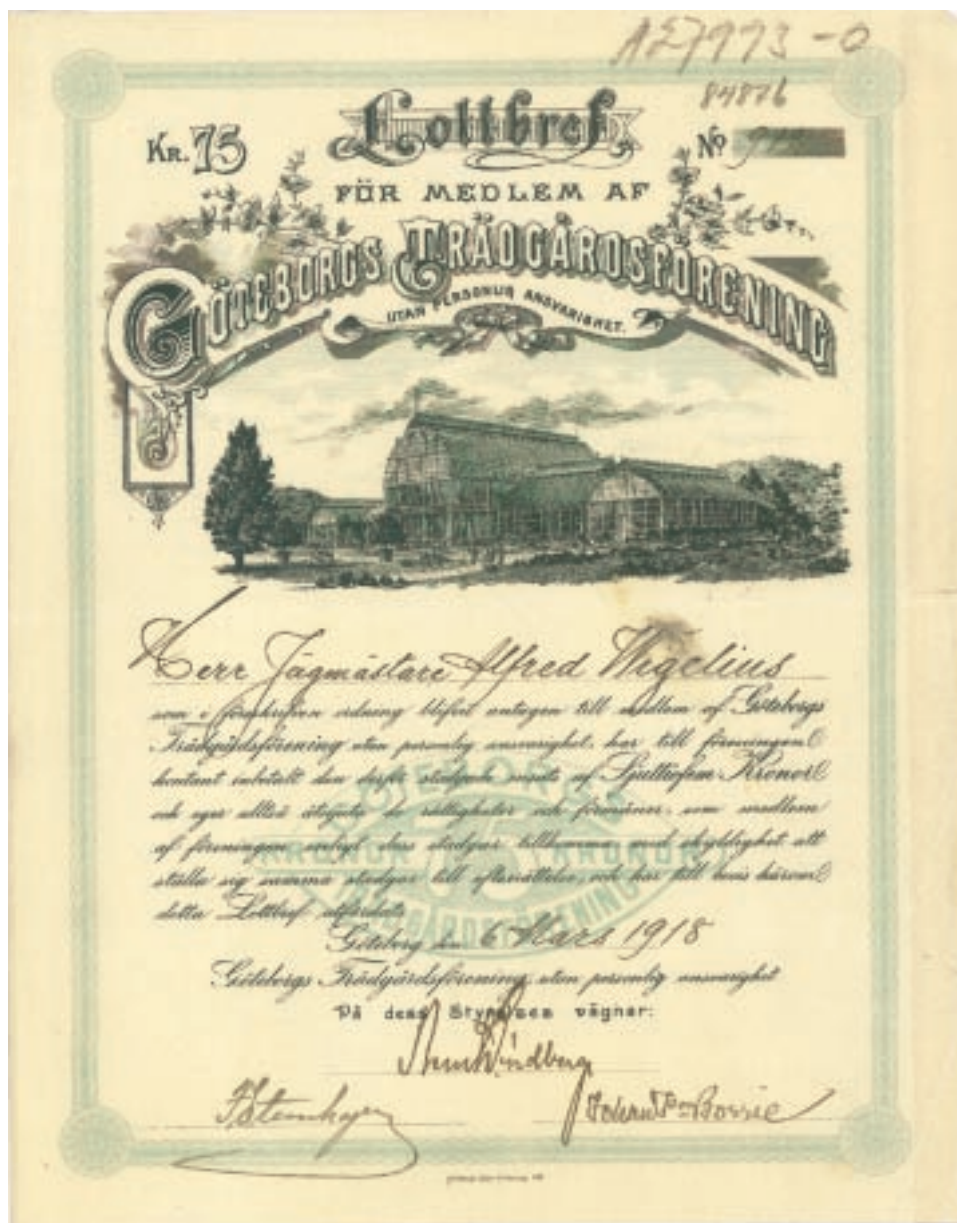 A27993-0
84876
Kr. 75
Lottbref
No
FÖR MEDLEM AF
GÖTEBORGS TRÄDGÅRDSFÖRENING
UTAN PERSONLIG ANSVARIGHET.
Herr Jägmästare Alfred Wigelius
som i föreskrifven ordning blifvit antagen till medlem af Göteborgs
Trädgårdsförening utan personlig ansvarighet, har till föreningen
kontant inbetalt den derför stadgade insats af Sjuttiofem Kronor
och eger alltså åtnjuta de rättigheter och förmåner, som medlem
af föreningen enligt dess stadgar tillkomma med skyldighet att
ställa sig samma stadgar till efterrättelse, och har till bevis härom
detta Lottbref utfärdats
Göteborg den 6 Mars 1918
Göteborgs Trädgårdsförening utan personlig ansvarighet
På dess Styrelses vägnar:
KRONOR 75 KRONOR